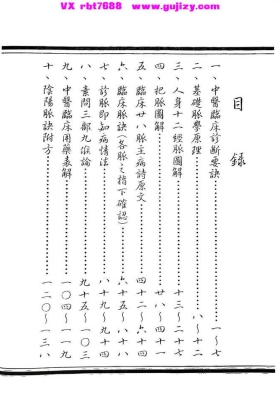 VX rbt7688 www.gujizy.com
目錄
一、中醫臨床診斷要訣……………一～七
二、基礎脈學原理……………八～十二
三、人身十二經脈圖解……………十三～二十七
四、把脈圖解……………廿八～四十一
五、臨床廿八脈主病詩原文……………四十二～六十四
六、臨床脈訣（各脈之指下確認）……………六十五～八十八
七、診脈即知病情法……………八十九～九十四
八、素問三部九候論……………九十五～一〇三
九、中醫臨床用藥表解……………一〇四～一一九
十、陰陽脈訣附方……………一二〇～一三八